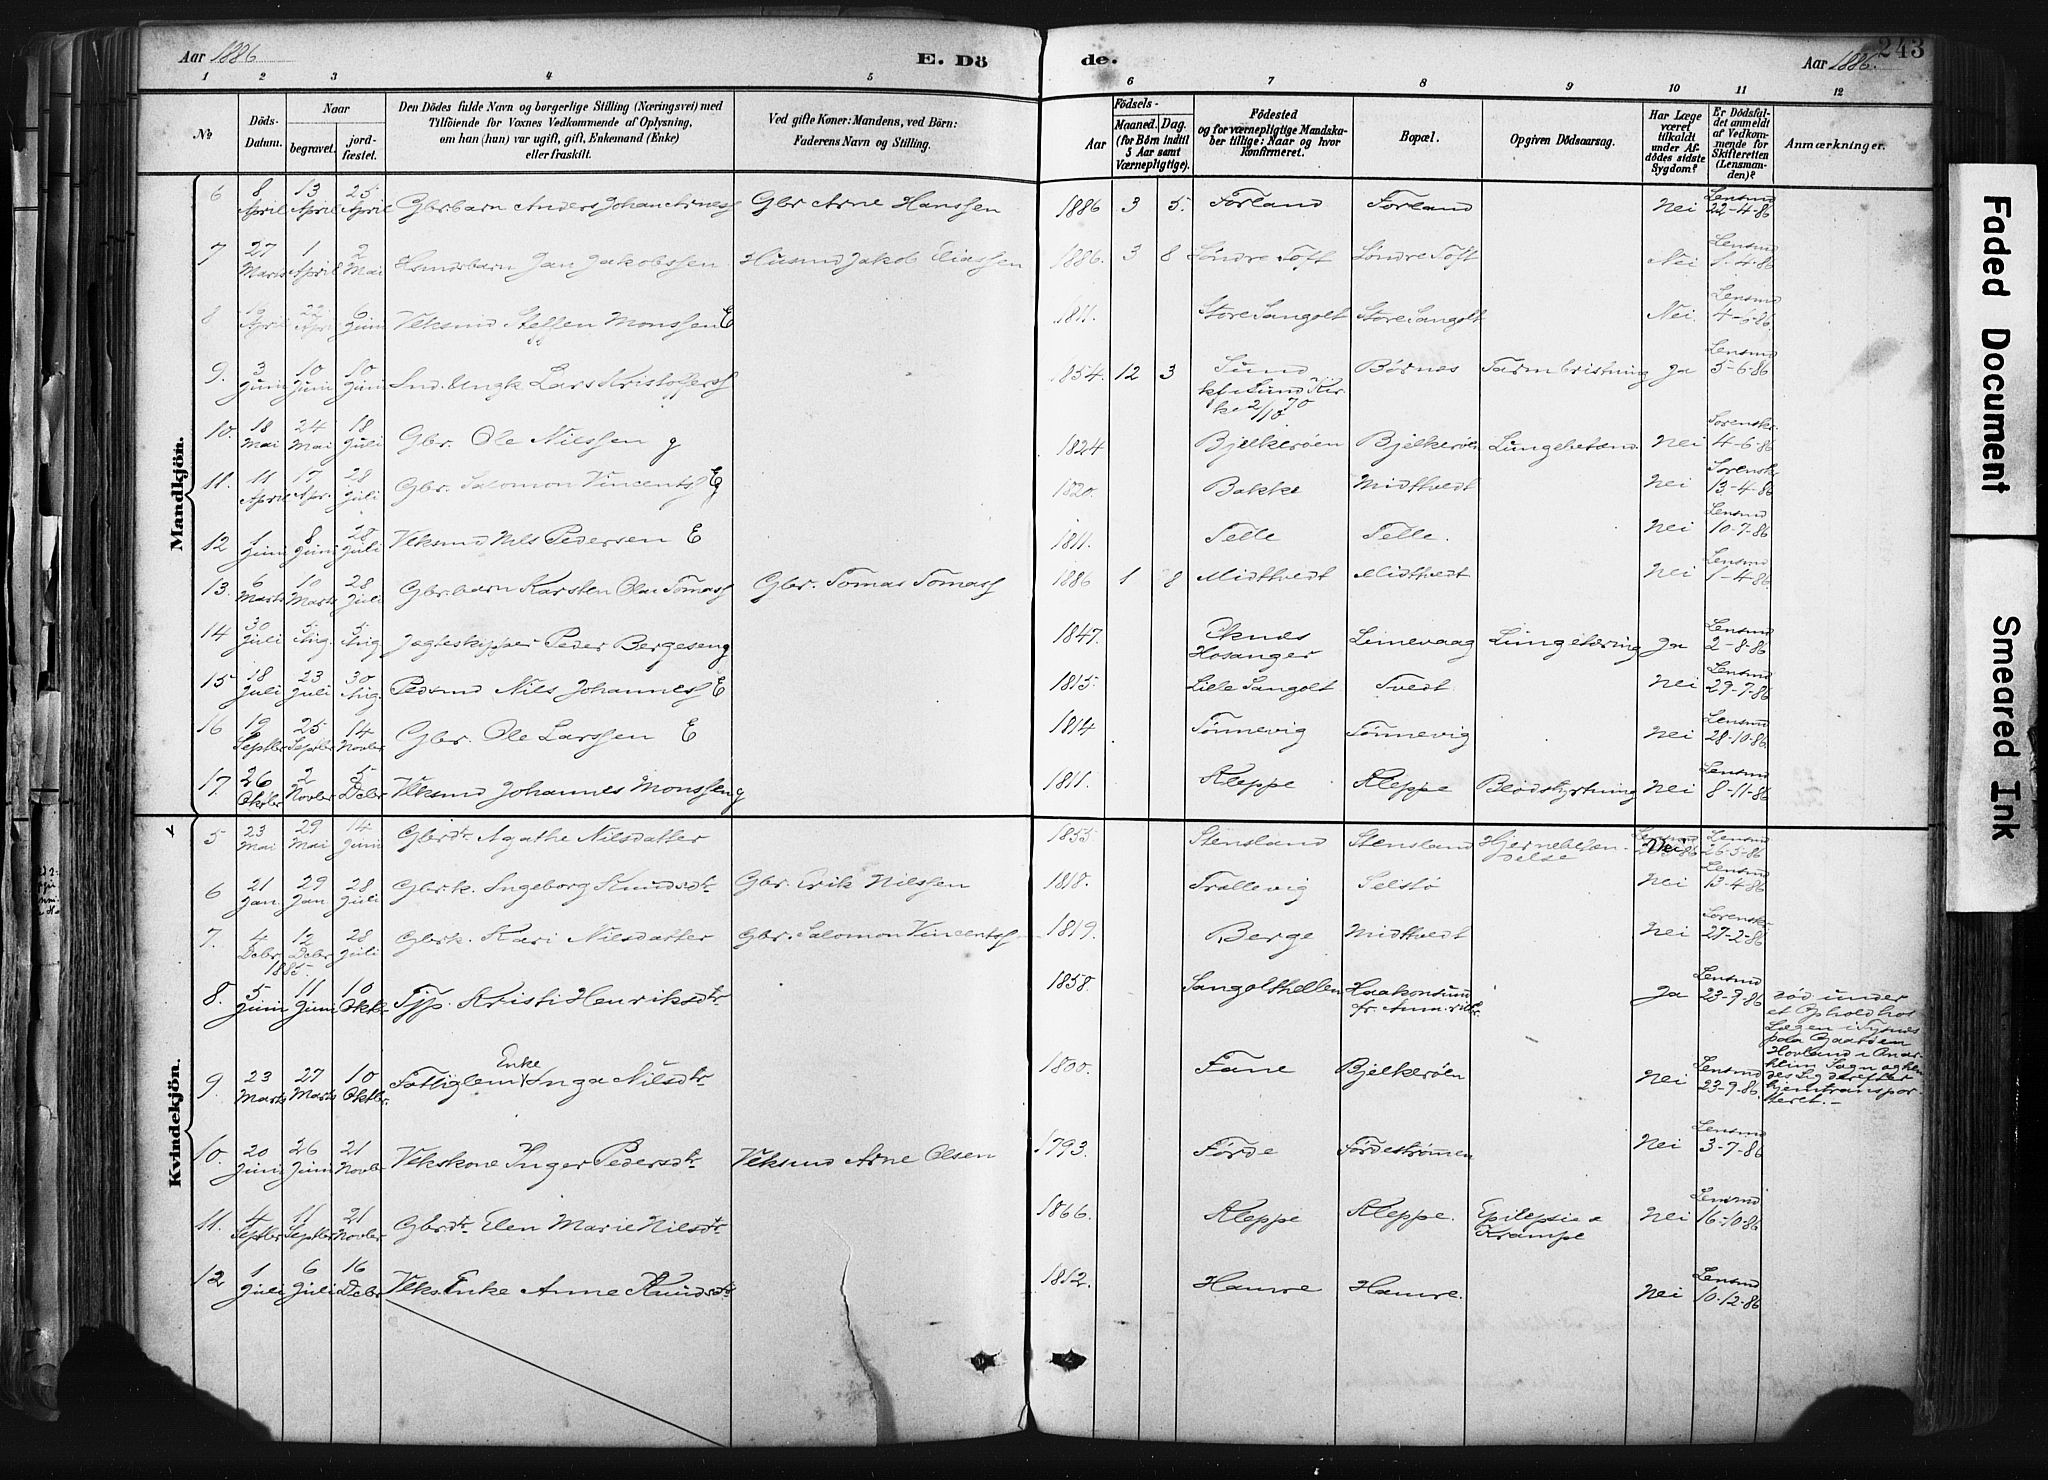 Aar 1886
E. Dö
de.
Aar 1886.
243
1 2 3 4 5 6 7 8 9 10 11 12
No
Döds-Datum.
Naar
begravet.
jord-fæstet.
Den Dödes fulde Navn og borgerlige Stilling (Næringsvei) med
Tilföiende for Voxnes Vedkommende af Oplysning,
om han (hun) var ugift, gift, Enkemand (Enke)
eller fraskilt.
Ved gifte Koner: Mandens, ved Börn:
Faderens Navn og Stilling.
Födsels-
Aar
Maaned. Dag.
(for Börn indtil
5 Aar samt
Værnepligtige).
Födested
og for værnepligtige Mandska-
ber tillige: Naar og hvor
konfirmeret.
Bopæl.
Opgiven Dödsaarsag.
Har Læge
været
tilkaldt
under Af-
dödes sidste
Sygdom?
Er Dödsfal-
det anmeldt
af Vedkom-
mende for
Skifteretten
(Lensman-
den)?
Anmærkninger.
Mandkjön.
6 8 April 13 April 25 April Gbrbarn Anders Johan Arness Gbr Arne Hanssen 1886 3 5. Forland Forland Nei Lensmd 22-4-86
7 27 Marts 1 April 2 Mai Husmdsbarn Jan Jakobssen Husmd Jakob Eliassen 1886. 3 8 Søndre Toft Søndre Toft Nei Lensmd 1-4-86
8 19 April 6 Juni Veksmd Steffen Monssen E 1811. Store Sangolt Store Sangolt Nei. Lensmd
9. 3 Juni 10 Juni 10 Juni Ind. Ungk Lars Kristoffers 1854. 12 3 Sund
kf i Sund Kir-
ke 2/10 70 Børnes Tarmbristning Ja Lensmd 5-6-86
10. 18 Mai 24 Mai 18 Juli Gbr. Ole Nilssen g 1824 Bjelkerøen Bjelkerøen Lungebetænd. Nei Sorenskr 4-6-86
11. 11 April 17 Apr. 28 Juli Gbr. Salomon Vincents E 1820. Bakke Midttvedt Nei Sorenskr 13-4-86
12 1 Juni 8 Juni 28 Juli Veksmd Nils Pedersen E 1811. Telle Telle. Nei Lensmd 10-7-86
13. 6 Marts 10 Marts 28 Juli Gbr.barn Karsten Olai Tomass Gbr. Tomas Tomass 1886 1 8 Midttvedt Midttvedt Nei Lensmd 1-4-86
14 30 Juli 5 Aug. 5 Aug Jagteskipper Peder Bergesen g 1847. Eknæs
Hosanger Limevaag Lungetæring Ja Lensmd 2-8-86
15 18 Juli 23 Juli 30 Aug. Pedsmd Nils Johanness E 1815. Lille Sangolt Tvedt Nei Lensmd 29-7-86
16 19 Septbr 25 Septbr 14 Novbr Gbr. Ole Larssen E 1814 Tønnevig Tønnevig Nei Lensmd 28-10-86
17. 26 Oktbr 2 Novbr 5 Debr Veksmd Johannes Monssen g 1811. Kleppe Kleppe Blodstyrtning Nei Lensmd 8-11-86
Kvindekjön.
5 23 Mai 29 Mai 14 Juni Gbrdtr Agathe Nilsdatter 1855 Stensland Stensland Hjernebetæn-
delse Nei Lensmd 26-5-86
6 21 Jan. 29 Jan 28 Juli Gbrk. Ingeborg Knudsdtr Gbr. Erik Nilssen 1818. Trællevig Selstø Nei Lensmd 13-4-86
7. 4 Debr 12 Debr
1885. 28 Juli Gbrk. Kari Nilsdatter Gbr. Salomon Vincents 1819. Berge Midttvedt Nei Sorenskr 27-2-86
8. 5 Juni 11 Juni 10 Oktbr Tjp. Kristi Henriksdtr 1858. Sangolthellen Haakonsund Ja Lensmd 23-9-86 død under
et Ophold hos
Lægen i Tysnes
paa Gaarden
Hovland i Onar-
heim Sogn og hen-
des Lig derefter
hjemtranspor-
teret. –
9 23 Marts 27 Marts 10 Oktbr. Fattiglem Enke Inga Nilsdtr. 1800. Fane Bjelkerøen Nei Lensmd 23-9-86.
10. 20 Juni 26 Juni 21 Novbr Vekskone Inger Pedersdtr. Veksmd Arne Olsen 1793. Førde Førdestrømen Nei Lensmd 3-7-86
11. 4 Septbr 11 Septbr 21 Novbr Gbrdtr Elen Marie Nilsdtr 1866. Kleppe Kleppe. Epilepsi &
Krampe Nei Lensmd 16-10-86
12 1 Juli 6 Juli 16 Debr Veks Enke Anne Knudsdtr 1812. Hamre Hamre. Nei Lensmd 10-12-86
Faded Document
Smeared Ink